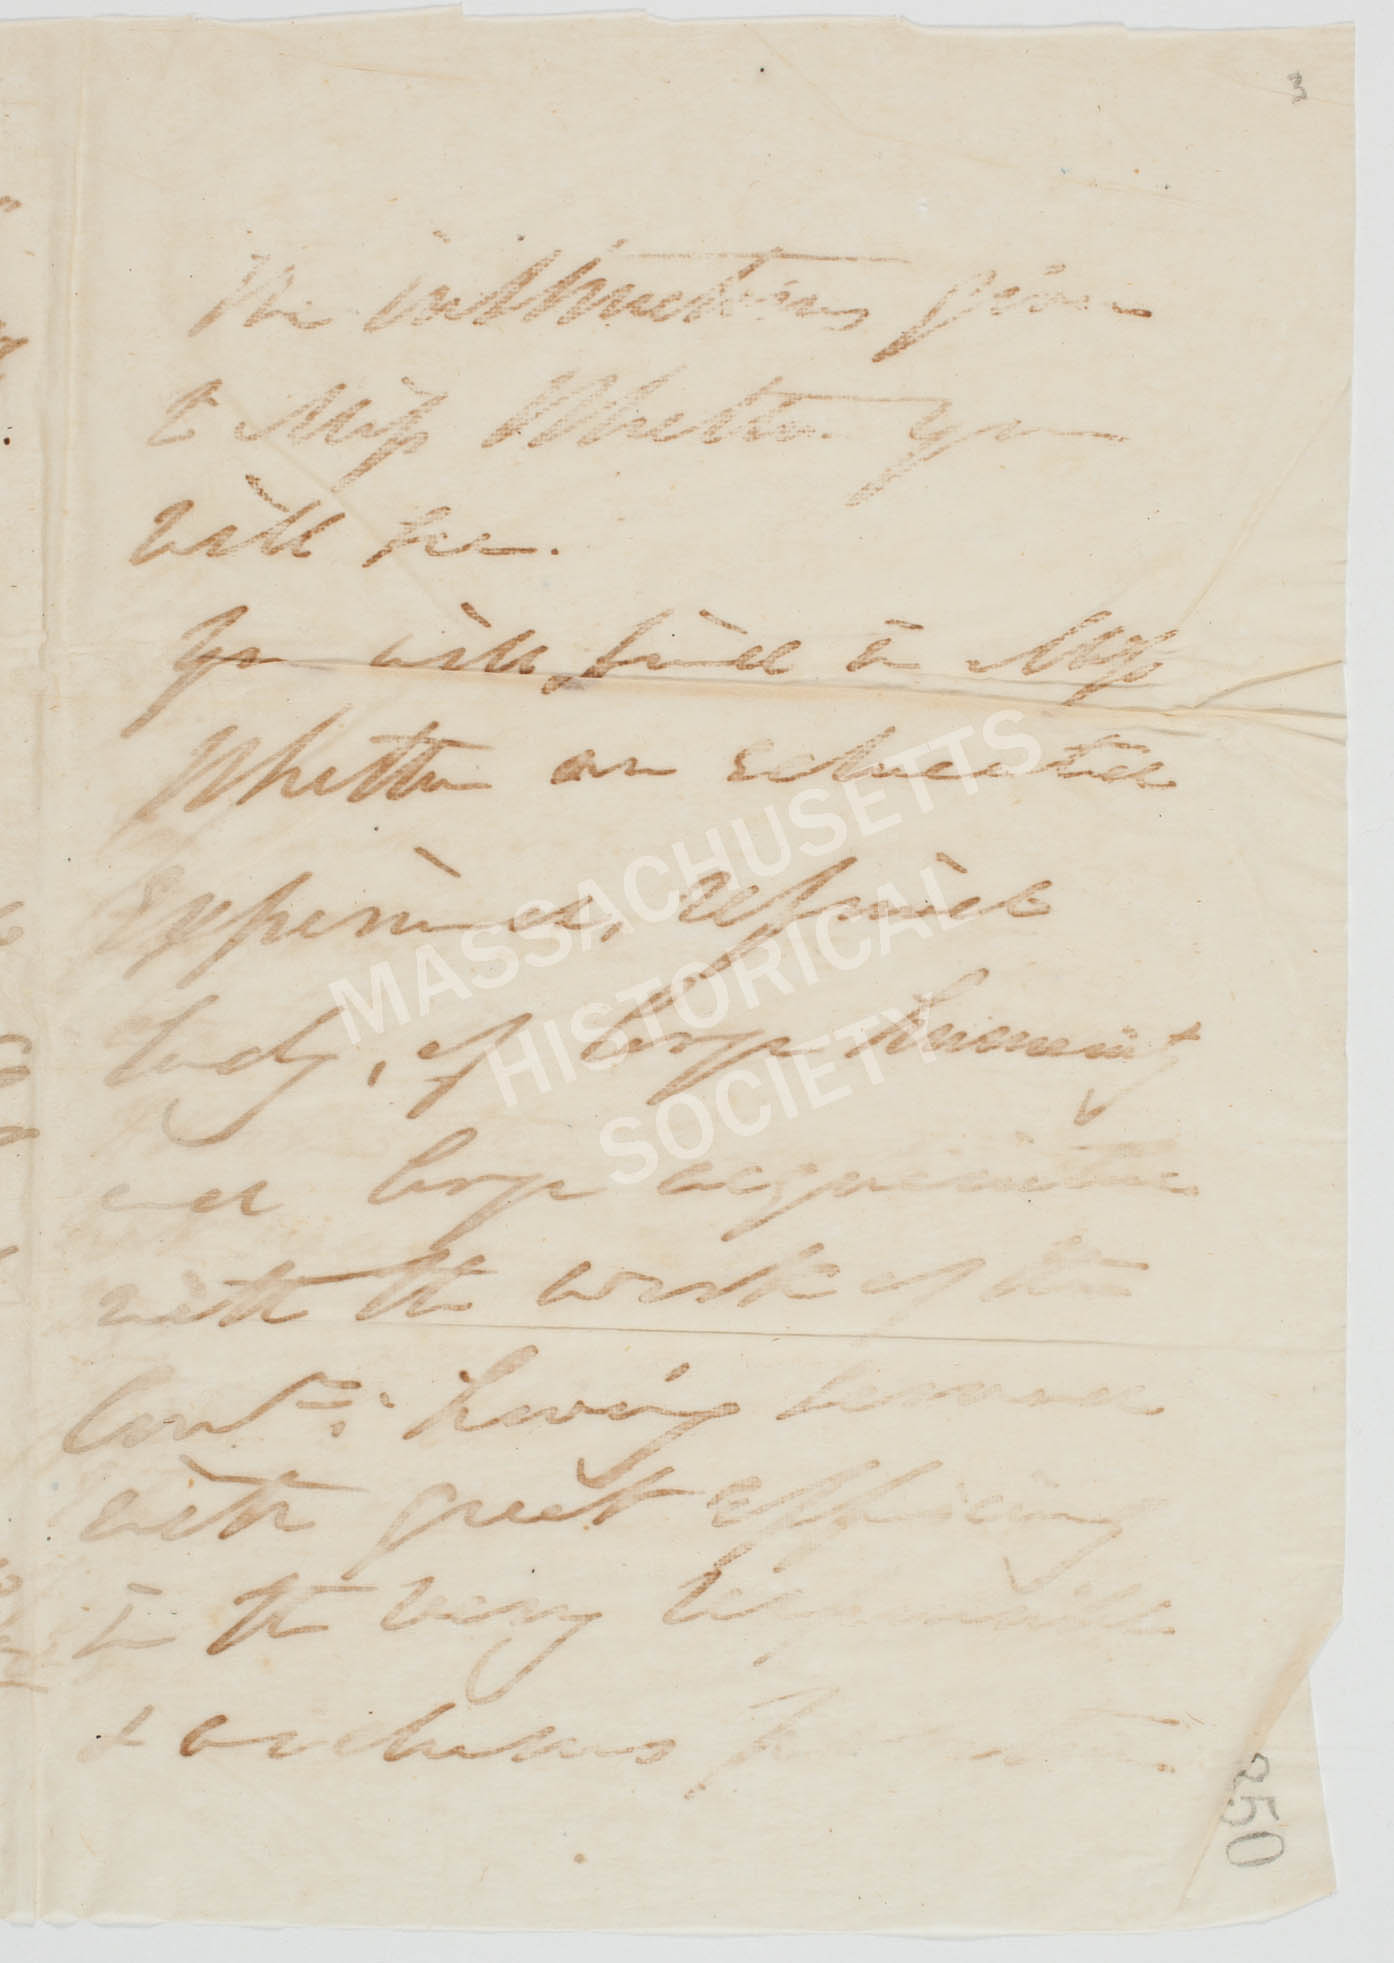 3
The instructions given
to Miss Whetten you
will see.
You will find in Miss
Whetten an educated
Experienced, refined
lady, of large humanity
and large acquaintance
with the work of the
Comn; having served
with great efficiency
in the very
& arduous
250
MASSACHUSETTS
HISTORICAL
SOCIETY